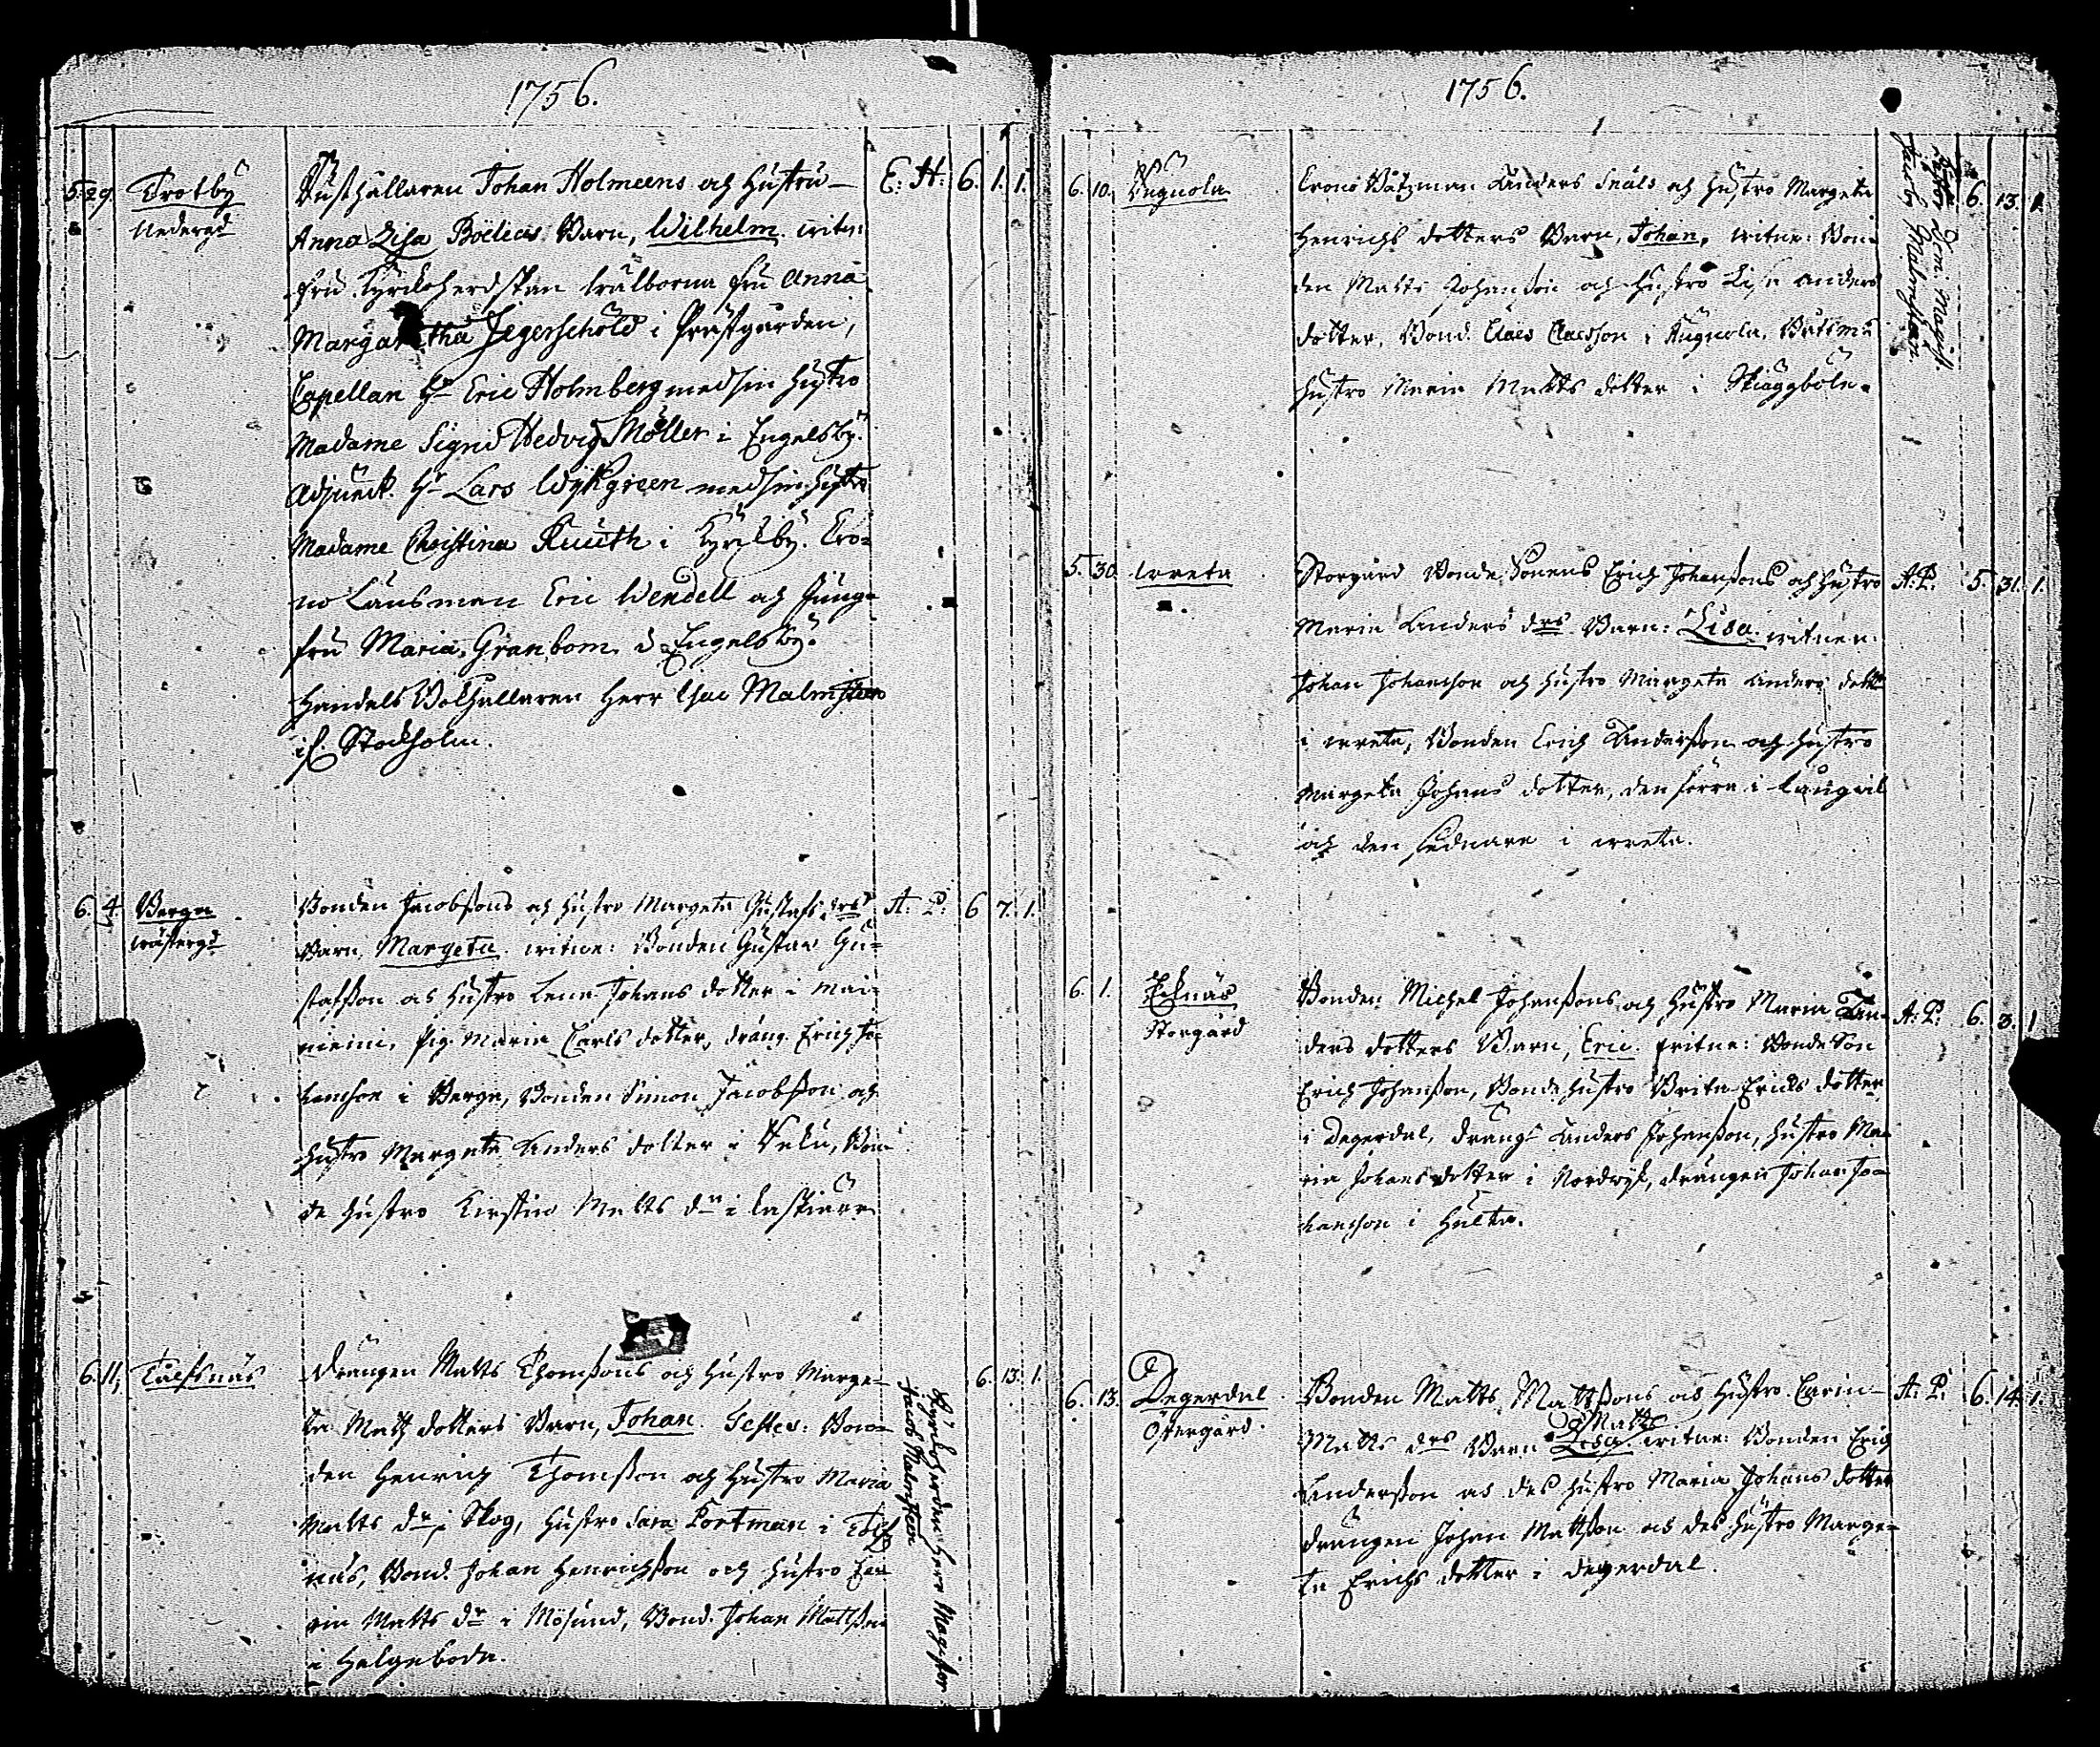 1756.
5. 29. Trotby
Nedergd
Rusthållaren Johan Holmeens och hustru E: H: 6. 1. 1.
Anna Lisa Boëlicas Barn, Wilhelm. witn:
fru Kyrckoherdskan wälborna fru Anna
Margaretha Jegerschöld i Prästgården,
Capellan Hr Eric Holmberg med sin hustro
Madame Signe Hedvig Möller i Engelsby.
Adjunct. Hr Lars Wykgreen med sin hustro
Madame Christina Ruuth i Kyrckby. Cro=
no Länsman Eric Wendell och Jung=
fru Maria Granbom i Engelsby.
Handels Bokhållaren Herr Isac Malmsteen
if. Stockholm.
6. 4. Berga
wästergd
Bonden Jacobssons och hustro Margeta Gustafs drs A: P: 6 7. 1.
Barn, Margeta. witne: Bonden Gustav Gu=
stafsson och hustro Lena Johans dotter i
Pig. Maria Carls dotter, dräng. Erich Jo=
hansson i Berga, Bonden Simon Jacobsson och
hustro Margeta Anders dotter i Bon=
de hustro Kirstin Matts dr i
6. 11. Tålfsnäs
Drängen Matts Thomssons och hustro Marge= 6. 13. 1.
ta Matts dotters Barn, Johan. Testes: Bon=
den Henrich Thomsson och Hustro Maria
Matts dr i Skog, hustro Sara Portman i Tålfs
näs, Bond. Johan Henrichsson och hustro Ca
rin Matts dr i Mösund, Bond. Johan Mattsson
i Helgeboda.
Kyrckoherden Herr Magister
Jacob Malmsteen
1756.
6. 10. Rugnola
Crono Båtzman Anders Snäls och hustro Margeta 6. 13. 1.
Henrichs dotters Barn, Johan. witne: Bon=
den Matts Johansson och hustro Lisa Anders
dotter, Bond. Claes Claesson i Rugnola, Båtsmans
hustro Maria Matts dotter i Skäggböle.
Jacob Malmsteen.
5. 30. wreta
Storgård Bonde Sonens Erich Johanssons och hustro A: P: 5. 31. 1.
Maria Anders drs Barn: Lisa. witnen:
Johan Johansson och hustro Margeta Anders dotter
i wreta, Bonden Erich Andersson och hustro
Margeta Johans dotter, den förra i Långwik
och den sednare i wreta.
6. 1. Ecknäs
Storgård
Bonden Michel Johanssons och hustro Maria An= A: P: 6. 3. 1
ders dotters Barn, Eric. witne: Bonde Son
Erich Johansson, Bonde hustro Brita Ericks dotter
i Degerdal, Drängs Anders Johansson, hustro Ma=
ria Johans dotter i Nordwyk, drängen Johan Jo=
hansson i Hulta.
6. 13. Degerdal
Östergård.
Bonden Matts Mattssons och hustro Carin A: P: 6. 14. 1.
Matts
Matts drs Barn Lisa witne: Bonden Erich
Andersson och des hustro Maria Johans dotter
drängen Johan Mattsson och des hustro Marge=
ta Erichs dotter i Degerdal.